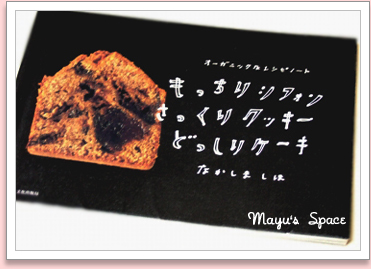 オーガニックなレシピノート
もっちりシフォン
さっくりクッキー
どっしりケーキ
なかしましほ
文化出版局
Mayu's Space